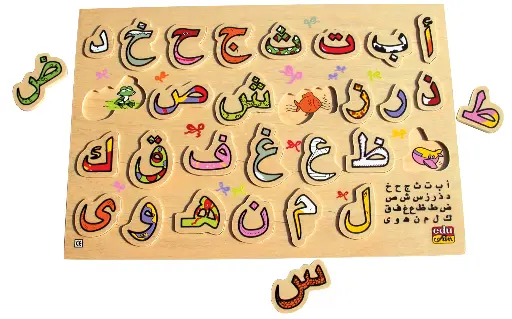 أ ب ت ث ج ح خ د
ذ ر ز ش ص
ض
ط
ظ ع غ ف ق ك
ل م ن هـ و ى
أ ب ت ث ج ح خ
د ذ ر ز س ش ص
ض ط ظ ع غ ف ق
ك ل م ن ه و ى
edu
CE
س